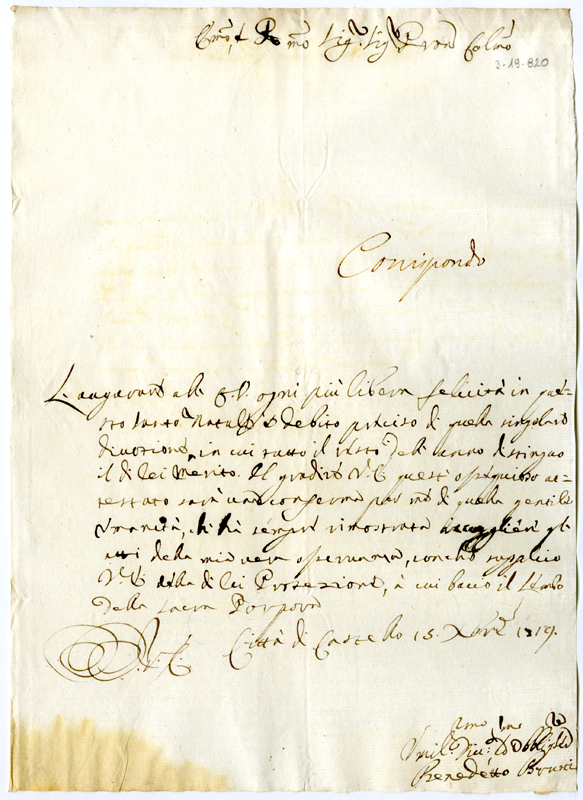 Emo, e Rmo Sigr, Sigr Pron Colmo
3-19-820
Corrispondo
L'augurare alla E. V. ogni più libera felicità in que=
sto Santo Natale è debito preciso di quella singolare
divozione, in cui tutto il resto dell'anno distinguo
il di lei Merito. Il gradire V. E. quest'ossequioso at=
testato sarà una conferma per me di quella gentile
Umanità, che hà sempre rimostrata accogliere gl'
atti della mia vera osservanza, conche supplico
V. E. della di lei Protezione, à cui bacio il Lembo
della Sacra Porpora
D. V. E. Città di Castello 15. Xbre 1719.
Umil.mo Div.mo ed Obbligat.
Benedetto